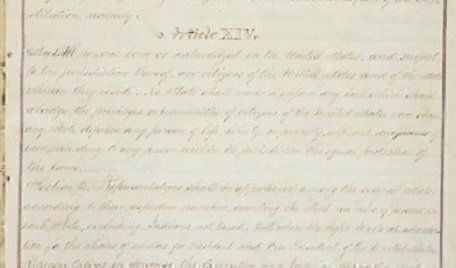 Article XIV.
Section 1. All persons born or naturalized in the United States, and subject
to the jurisdiction thereof, are citizens of the United States and of the State
wherein they reside. No State shall make or enforce any law which shall
abridge the privileges or immunities of citizens of the United States; nor shall
any State deprive any person of life, liberty, or property, without due process of
law; nor deny to any person within its jurisdiction the equal protection of
the laws.
Section 2. Representatives shall be apportioned among the several States
according to their respective numbers, counting the whole number of persons in
each State, excluding Indians not taxed. But when the right to vote at any elec-
tion for the choice of electors for President and Vice President of the United States,
Representatives in Congress, the Executive and Judicial